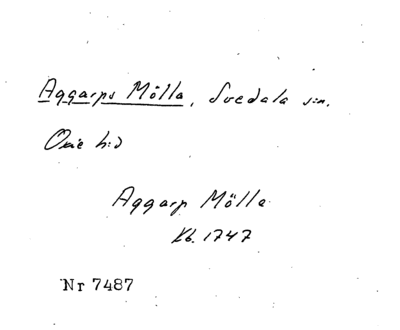 Aggarps Mölla, Svedala s:n.
Oxie h:d
Aggarp Mölla
Kb. 1747
Nr 7487